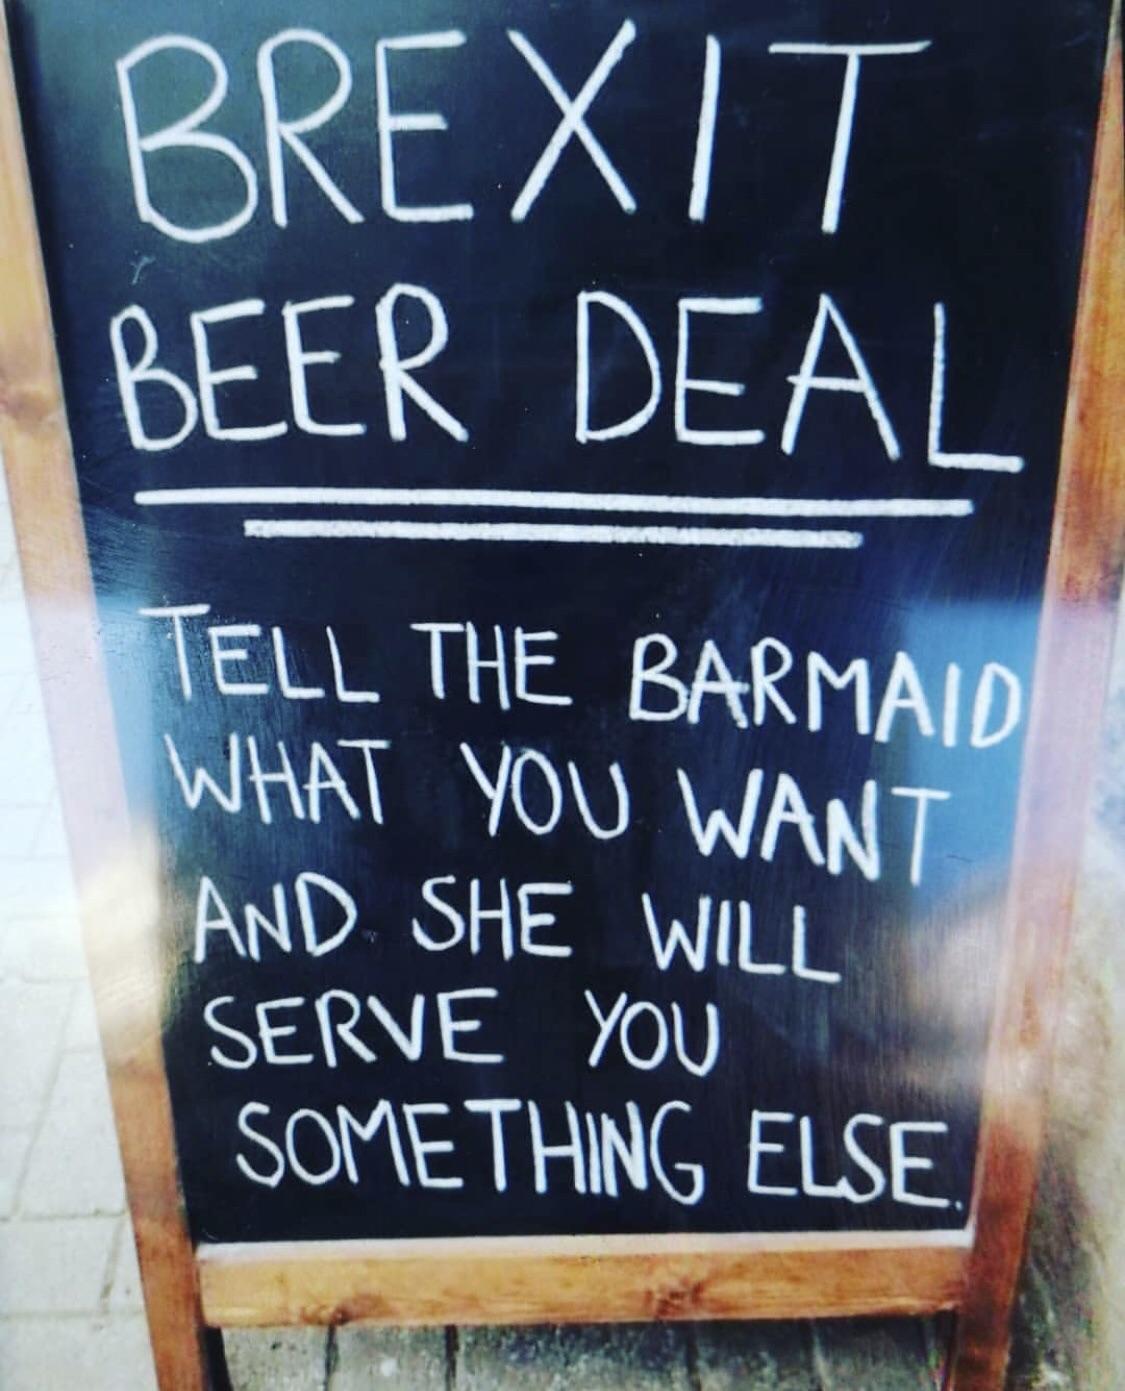 BREXIT
BEER DEAL
TELL THE BARMAID
WHAT YOU WANT
AND SHE WILL
SERVE YOU
SOMETHING ELSE.